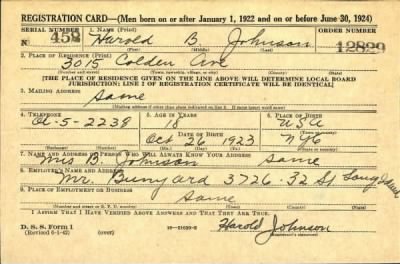 REGISTRATION CARD—(Men born on or after January 1, 1922 and on or before June 30, 1924)
SERIAL NUMBER 1. NAME (Print) ORDER NUMBER
458 Harold B Johnson 12829
(First) (Middle) (Last)
2. PLACE OF RESIDENCE (Print)
3015 Colden Ave
(Number and street) (Town, township, village, or city) (County) (State)
[THE PLACE OF RESIDENCE GIVEN ON THE LINE ABOVE WILL DETERMINE LOCAL BOARD
JURISDICTION; LINE 2 OF REGISTRATION CERTIFICATE WILL BE IDENTICAL]
3. MAILING ADDRESS
Same
[Mailing address if other than place indicated on line 2. If same insert word same]
4. TELEPHONE 5. AGE IN YEARS 6. PLACE OF BIRTH
Ol-5-2239 18 USA
DATE OF BIRTH
Oct 26 1923 NYC
7. NAME AND ADDRESS OF PERSON WHO WILL ALWAYS KNOW YOUR ADDRESS
Mrs B Johnson Same
8. EMPLOYER'S NAME AND ADDRESS
Mr. Bunyard 3726-32 St Long Island
9. PLACE OF EMPLOYMENT OR BUSINESS
Same
(Number and street or R. F. D. number) (Town) (County) (State)
I AFFIRM THAT I HAVE VERIFIED ABOVE ANSWERS AND THAT THEY ARE TRUE.
D. S. S. Form 1
(Revised 6-1-42) (over)
Harold Johnson
(Registrant's signature)